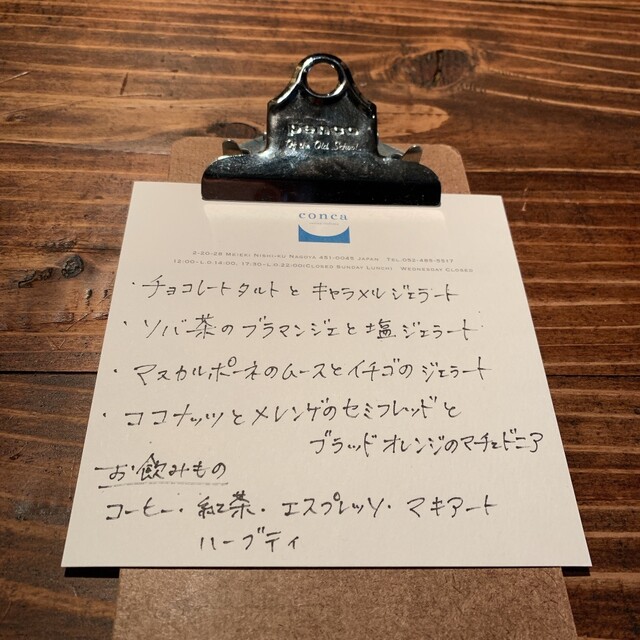 penco
Of the Old School
conca
2-20-29 Meieki Nishi-ku Nagoya 451-0045 Japan Tel.052-485-9917
12:00-L.O.14:00, 17:30-L.O.22:00(Closed Sunday Lunch) Wednesday Closed
・チョコレートタルトと キャラメルジェラート
・ソバ茶のブラマンジェと塩ジェラート
・マスカルポーネのムースとイチゴのジェラート
・ココナッツとメレンゲのセミフレッドと
ブラッドオレンジのマチェドニア
お飲みもの
コーヒー・紅茶・エスプレッソ・マキアート
ハーブティ